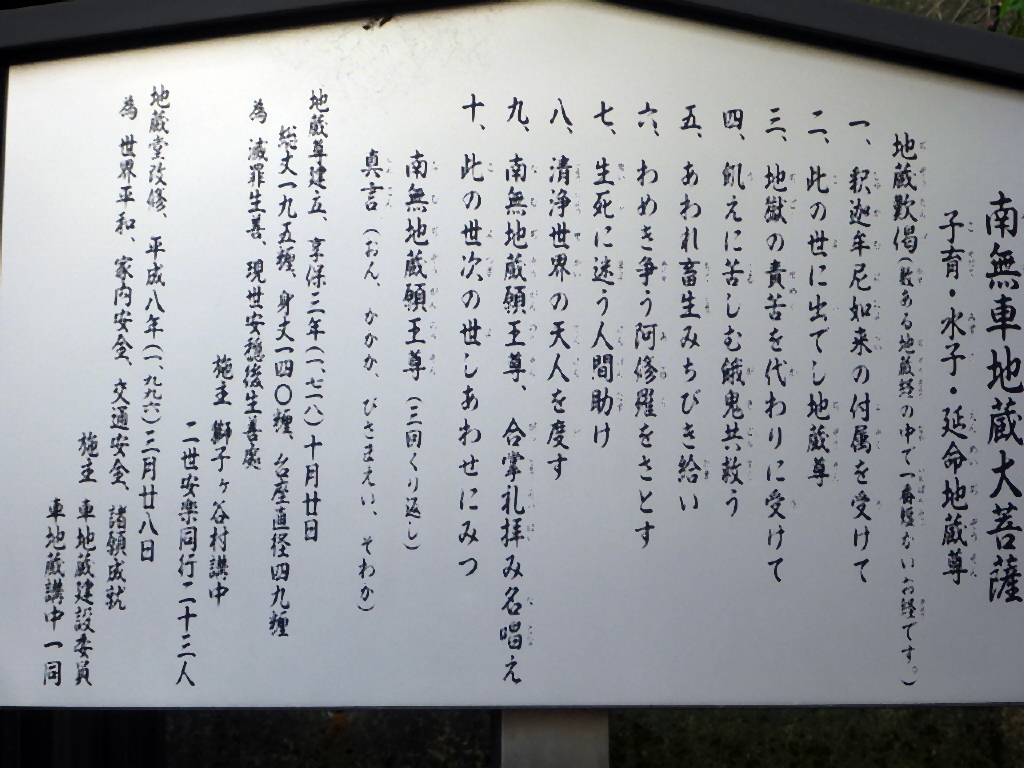 南無車地蔵大菩薩
子育・水子・延命地蔵尊
地蔵歎偈(数ある地蔵経の中で一番短かいお経です。)
一、釈迦牟尼如来の付属を受けて
二、此の世に出でし地蔵尊
三、地獄の責苦を代わりに受けて
四、飢えに苦しむ餓鬼共救う
五、あわれ畜生みちびき給い
六、わめき争う阿修羅をさとす
七、生死に迷う人間助け
八、清浄世界の天人を度す
九、南無地蔵願王尊、合掌礼拝み名唱え
十、此の世次の世しあわせにみつ
南無地蔵願王尊(三回くり返し)
真言(おん、かかか、びさまえい、そわか)
地蔵尊建立、享保三年(一、七一八)十月廿日
総丈一九五糎、身丈一四〇糎、台座直径四九糎
為 滅罪生善、現世安穏後生善処
施主 獅子ヶ谷村講中
二世安楽同行二十三人
地蔵堂改修、平成八年(一、九九六)三月廿八日
為 世界平和、家内安全、交通安全、諸願成就
施主 車地蔵建設委員
車地蔵講中一同